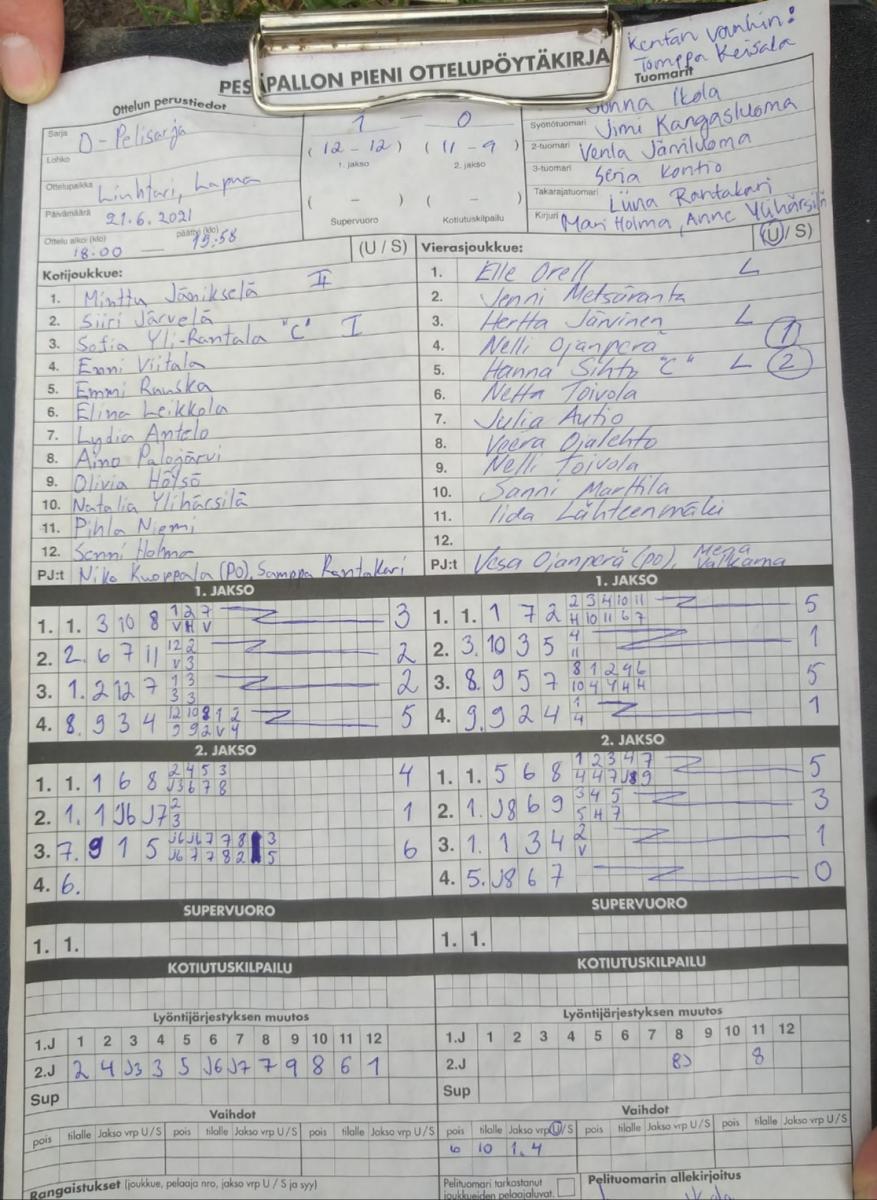 Kentän vanhin:
Tomppa Keisala
PESÄPALLON PIENI OTTELUPÖYTÄKIRJA
Ottelun perustiedot
Tuomarit
Sarja D-Pelisarja
Lohko
Ottelupaikka Liuhtari, Lapua
Päivämäärä 21.6.2021
Ottelu alkoi (klo) 18.00 — päättyi (klo) 19.58
1 — 0
(12 – 12) (11 – 9)
1. jakso 2. jakso
( – ) ( – )
Supervuoro Kotiutuskilpailu
Ikola
Syöttötuomari Jimi Kangasluoma
2-tuomari Venla Järviluoma
3-tuomari Seija Kontio
Takarajatuomari Liina Rantakari
Kirjuri Mari Holma, Anne Ylihärsilä
Kotijoukkue: (U / S)
1. Minttu Jänikselä II
2. Siiri Järvelä
3. Sofia Yli-Rantala "C" I
4. Enni Viitala
5. Emmi Rauska
6. Elina Leikkola
7. Lydia Antelo
8. Aino Palojärvi
9. Olivia Höysö
10. Natalia Ylihärsilä
11. Pihla Niemi
12. Sanni Holma
PJ:t Niko Kuoppala (PO), Samppa Rantakari
Vierasjoukkue: (U / S)
1. Elle Orell L
2. Jenni Metsäranta
3. Hertta Järvinen L
4. Nelli Ojanperä 1
5. Hanna Sihto "C" L 2
6. Netta Toivola
7. Julia Autio
8. Veera Ojalehto
9. Nelli Toivola
10. Sanni Marttila
11. Iida Lähteenmäki
12.
PJ:t Vesa Ojanperä (PO), Valkama
1. JAKSO
1. 1. 3 10 8 1 2 7 3
V H V
2. 2. 6 7 11 12 2 2
V 3
3. 1. 2 12 7 1 3 2
3 3
4. 8. 9 3 4 12 10 8 1 2 5
9 9 2 V 4
1. JAKSO
1. 1. 1 7 2 2 3 4 10 11 5
H 10 11 6 7
2. 3. 10 3 5 4 1
11
3. 8. 9 5 7 8 1 2 9 6 5
10 4 4 4 4
4. 9. 9 2 4 1 1
4
2. JAKSO
1. 1. 1 6 8 2 4 5 3 4
J3 6 7 8
2. 1. 1 J6 J7 2 1
3
3. 7. 9 1 5 J6 J6 7 7 8 3 6
J6 7 7 8 2 5
4. 6.
2. JAKSO
1. 1. 5 6 8 1 2 3 4 7 5
4 4 7 J8 9
2. 1. J8 6 9 3 4 5 3
5 H 7
3. 1. 1 3 4 2 1
V
4. 5. J8 6 7 0
SUPERVUORO
1. 1.
SUPERVUORO
1. 1.
KOTIUTUSKILPAILU
KOTIUTUSKILPAILU
Lyöntijärjestyksen muutos
1.J 1 2 3 4 5 6 7 8 9 10 11 12
2.J 2 4 J3 3 5 J6 J7 7 9 8 6 1
Sup
Lyöntijärjestyksen muutos
1.J 1 2 3 4 5 6 7 8 9 10 11 12
2.J 8J 8
Sup
Vaihdot
pois tilalle Jakso vrp U / S pois tilalle Jakso vrp U / S pois tilalle Jakso vrp U / S
Vaihdot
pois tilalle Jakso vrp U / S pois tilalle Jakso vrp U / S pois tilalle Jakso vrp U / S
6 10 1.4
Rangaistukset (joukkue, pelaaja nro, jakso vrp U / S ja syy)
Pelituomari tarkastanut
joukkueiden pelaajaluvat.
Pelituomarin allekirjoitus